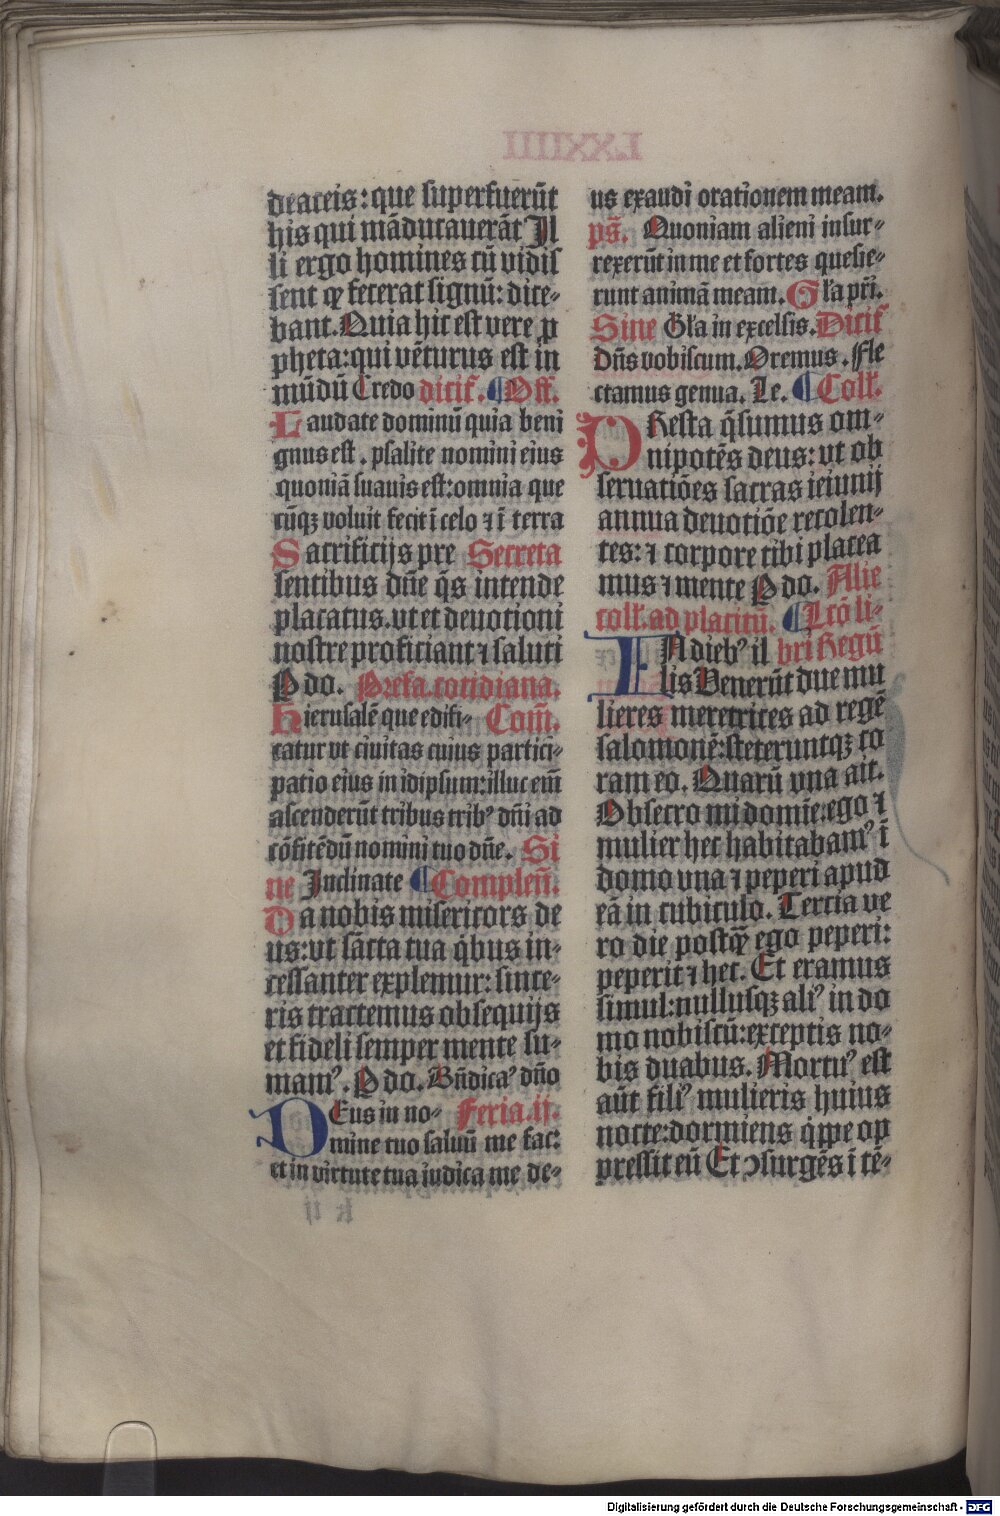 deaceis: que superfuerūt
his qui māducauerāt Il
li ergo homines cū vidis
sent qꝫ fecerat signū: dice-
bant. Quia hic est vere ꝓ
pheta: qui vēturus est in
mūdū Credo dicit᷒. ¶ Off.
Laudate dominū quia beni
gnus est. psalite nomini eius
quoniā suauis est: omnia que
cūqꝫ voluit fecit ī celo ⁊ ī terra
Sacrificijs pre Secreta
sentibus dn̄e q̄s intende
placatus. vt et deuotioni
nostre proficiant ⁊ saluti
P do. Prefa. cotidiana.
Hierusalē que edifi- Com̄.
catur vt ciuitas cuius partici-
patio eius in idipsum: illuc em̄
ascenderūt tribus tribꝰ dn̄i ad
cōfitēdū nomini tuo dn̄e. Si
ne Inclinate ¶ Complen̄.
Da nobis misericors de
us: vt sācta tua q̇bus in-
cessanter explemur: since-
ris tractemus obsequijs
et fideli semper mente su-
mamꝰ. P do. Bn̄dicaꝰ dn̄o
DEus in no- Feria. ij.
mine tuo saluū me fac:
et in virtute tua iudica me de-
us exaudi orationem meam.
ps̄. Quoniam alieni insur-
rexerūt in me et fortes quesie-
runt animā meam. Gl'a pr̄i.
Sine Gl'a in excelsis. Dicit᷒
Dn̄s vobiscum. Oremus. Fle
ctamus genua. Le. ¶ Coll'.
PResta q̄sumus om-
nipotēs deus: vt ob
seruatiōes sacras ieiunij
annua deuotiōe recolen-
tes: ⁊ corpore tibi placea
mus ⁊ mente P do. Alie
coll'. ad placitū. ¶ Lcō li-
IN diebꝰ il bri Regū
lis Venerūt due mu
lieres meretrices ad regē
salomonē: steteruntqꝫ co
ram eo. Quarū vna ait.
Obsecro mi domīe: ego ⁊
mulier hec habitabamꝰ ī
domo vna ⁊ peperi apud
eā in cubiculo. Tercia ve
ro die postqꝫ ego peperi:
peperit ⁊ hec. Et eramus
simul: nullusqꝫ aliꝰ in do
mo nobiscū: exceptis no-
bis duabus. Mortuꝰ est
aūt filiꝰ mulieris huius
nocte: dormiens q̇ppe op
pressit eū Et ↄsurgēs ī tē-
Digitalisierung gefördert durch die Deutsche Forschungsgemeinschaft - DFG